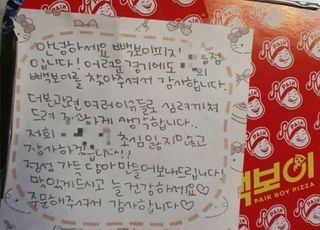 안녕하세요 빽보이피자 점
입니다! 어려운경기에도 희
빽보이를 찾아주셔서 감사합니다.
더본관련 여러이슈들로 심려끼쳐
드려 죄산하게 생각합니다.
저희 초심 잃지않고
장사하겠습니다!!
정성 가득 담아 만들어보내드립니다!
맛있게드시고 늘건강하세요♡
주문해주셔서 감사합니다♡
PAIK
빽보이
PAIK BOY PIZZA